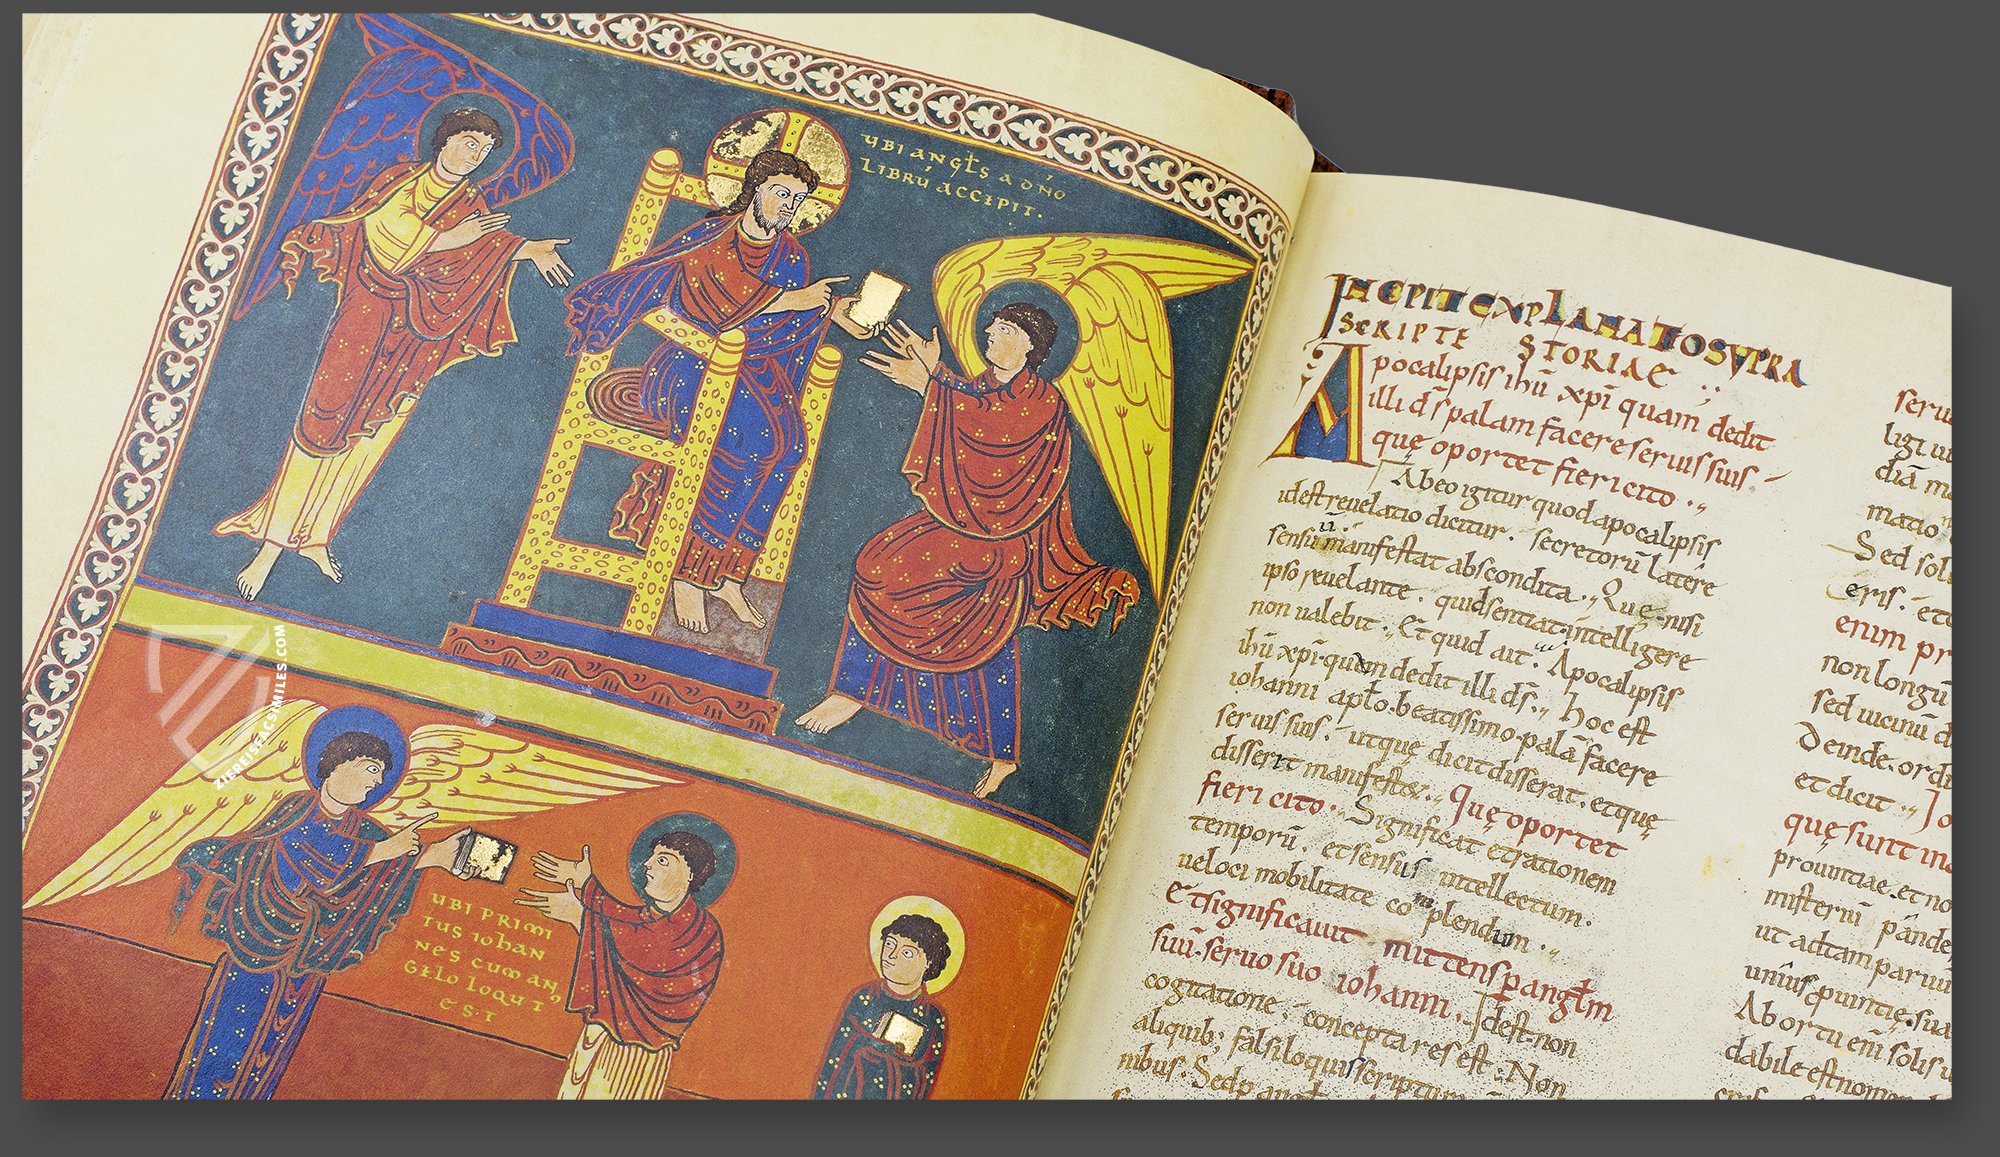 UBI ANGLS A DNO
LIBRU ACCEPIT.
UBI PRIMI
TUS IOHAN
NES CUM AN
GELO LOQUT
EST
ZIEREISFACSIMILES.COM
INCIPIT EXPLANATIO SUPRA
SCRIPTE STORIAE
Apocalipsis ihu xpi quam dedit
illi ds palam facere seruis suis.
que oportet fieri cito.
Abeo igitur quod apocalipsis
idest reuelatio dicitur. secretoru latere
sensu manifestat abscondita. Que nisi
ipso reuelante. quid sentiat intelligere
non ualebit. Et quid ait. Apocalipsis
ihu xpi quam dedit illi ds. hoc est
iohanni apto. beatissimo palam facere
seruis suis. utque dicit disserat. et que
disserit manifestet. Que oportet
fieri cito. Significat et rationem
temporu. et sensus intellectum.
ueloci mobilitate complendum.
Et significauit mittens p anglm
suu. seruo suo iohanni. Idest non
cogitatione. concepta res est. Non
aliquib; falsiloquis scriptum
nibus. Sed p angl
seru
ligi ui
dia m
matio
Sed soli
eris. et
enim pr
non longu
sed uicinu d
Deinde. ordi
et dicit. Io
que sunt in a
prouintiae. et no
misteriu pande
ut ad tam paruu
unius puintie. sua
Ab ortu eni solis u
dabile est nom